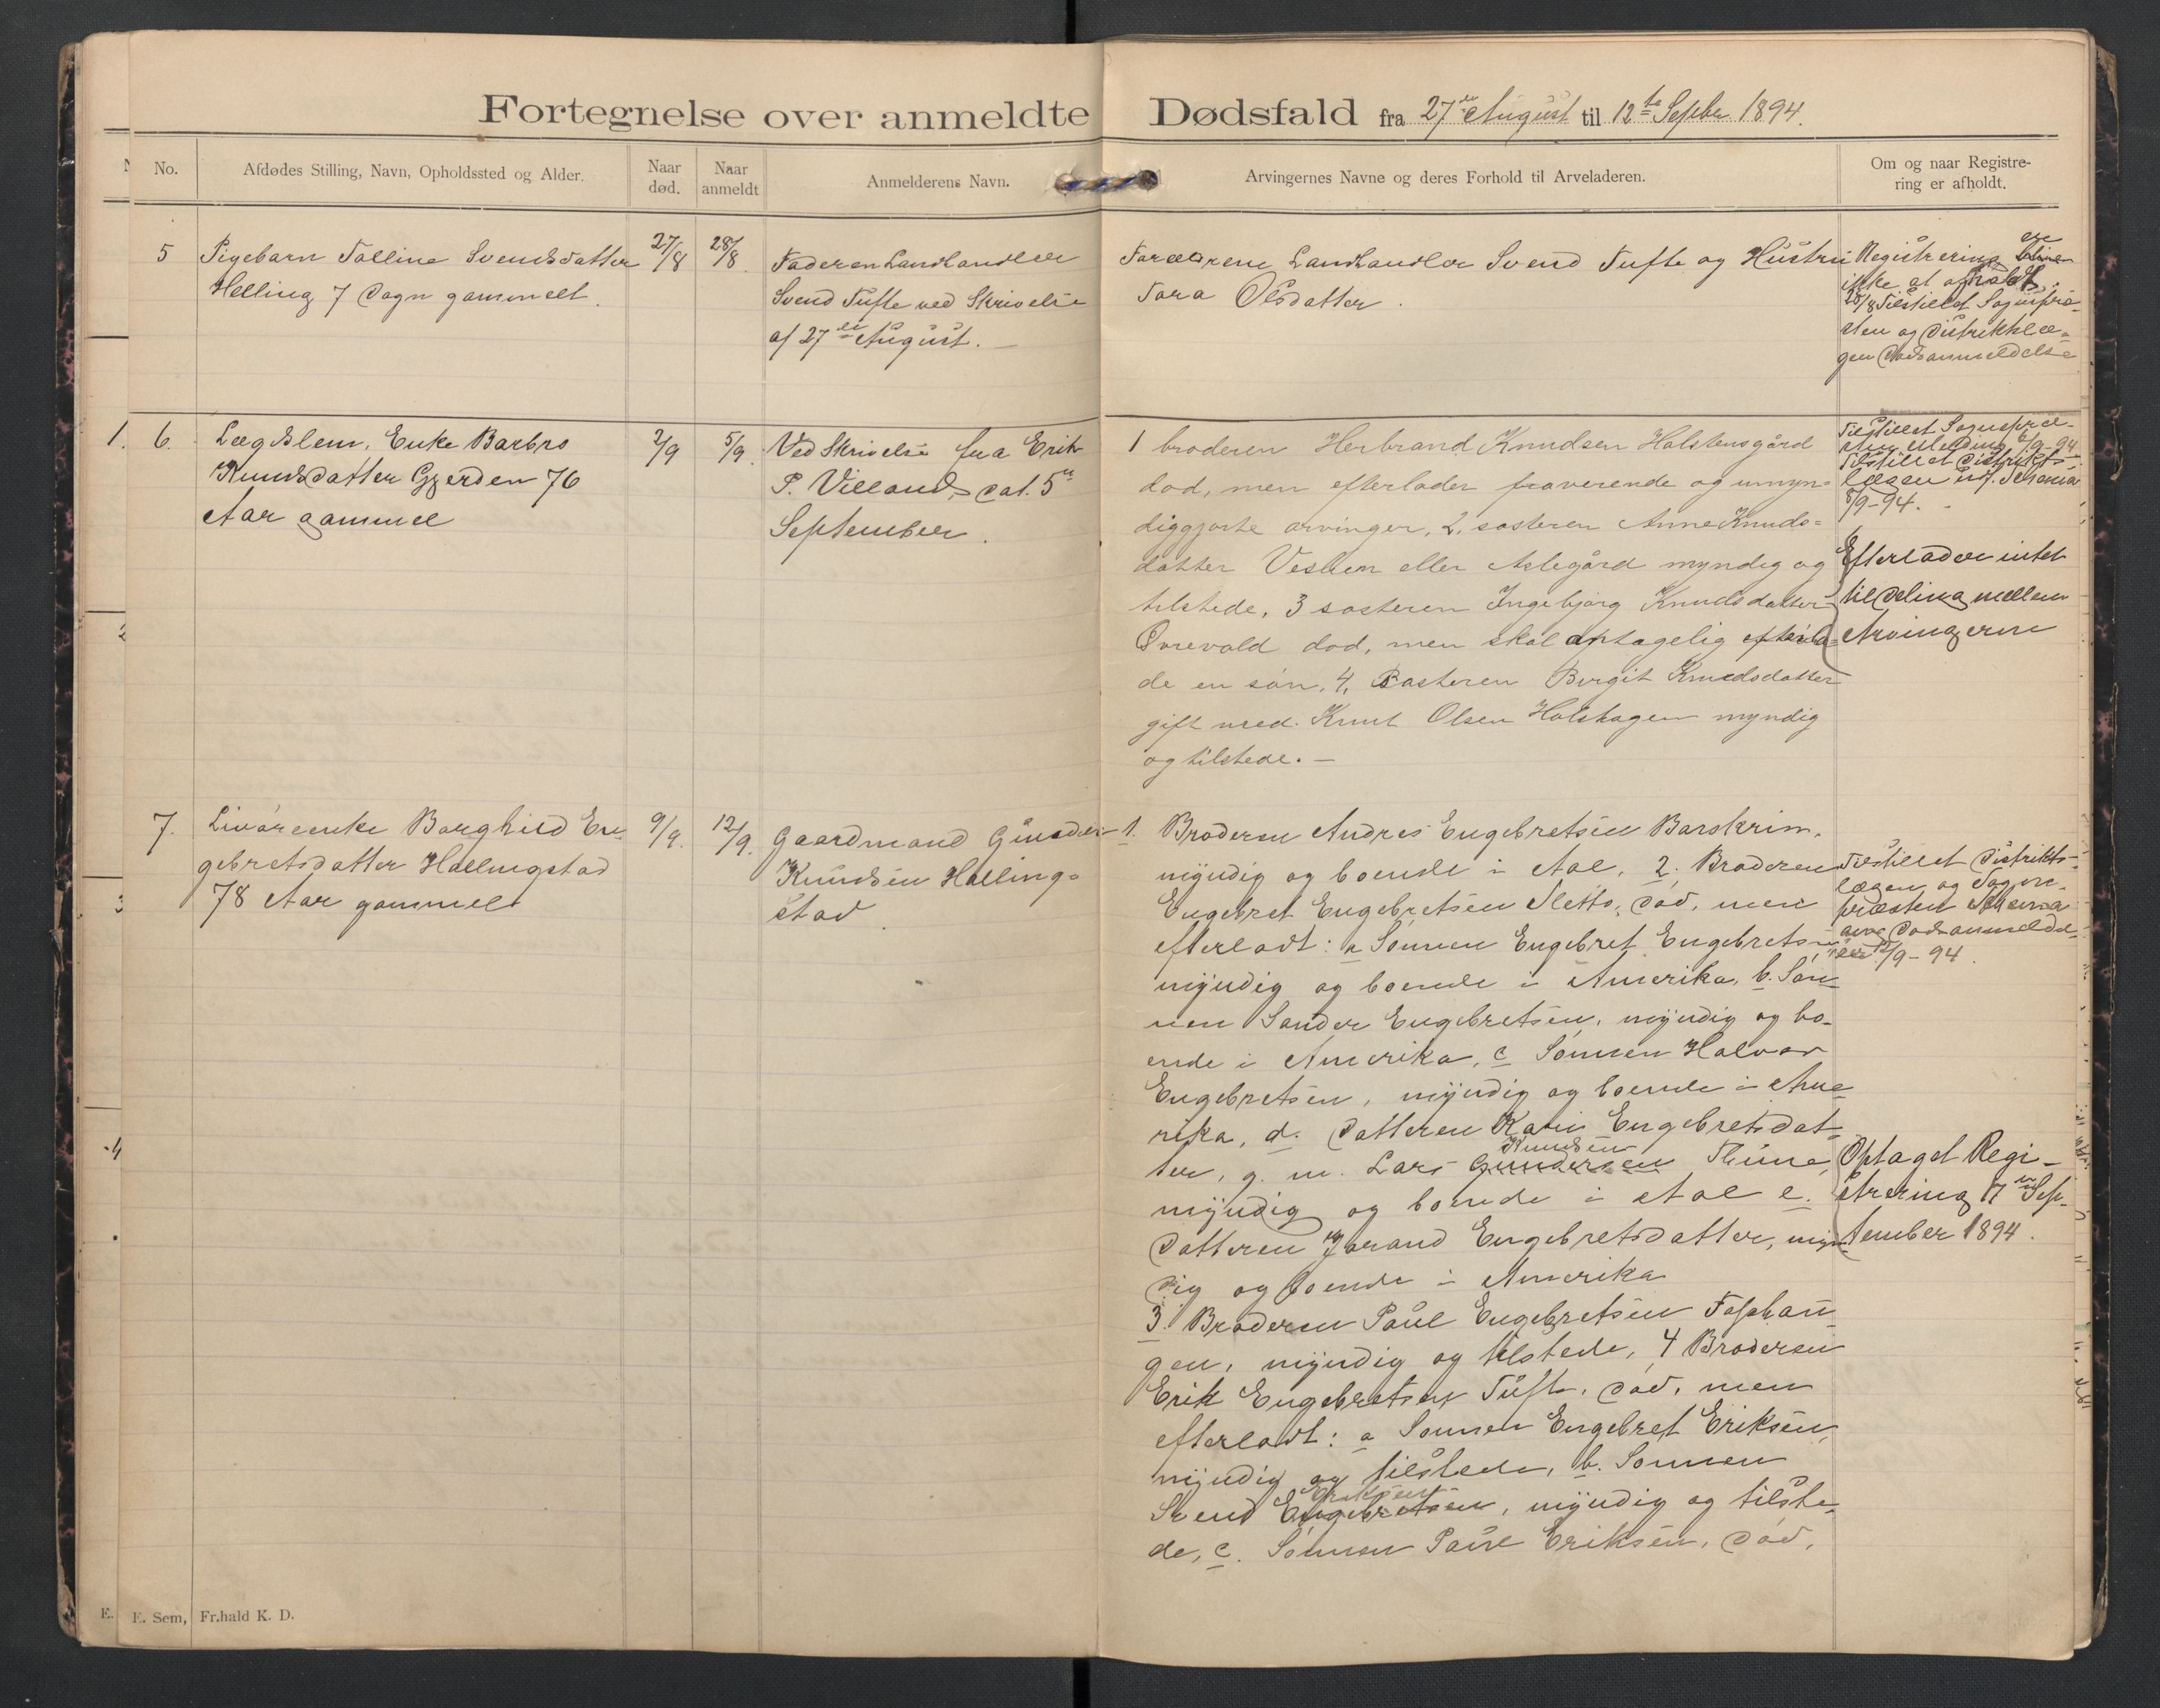 Fortegnelse over anmeldte Dødsfald fra 27de August til 12te Septbr 1894.
No.
Afdødes Stilling, Navn, Opholdssted og Alder.
Naar død.
Naar anmeldt
Anmelderens Navn.
Arvingernes Navne og deres Forhold til Arveladeren.
Om og naar Registre-
ring er afholdt.
5
Pigebarn Tolline Svendsdatter
Helling 7 Dage gammelt.
27/8
28/8.
Faderen Landhandler
Svend Tufte ved Skrivelse
af 27de August. —
Forældrene Landhandler Svend Tufte og Hustru
Tora Olsdatter.
Registrering
ikke at afholdt.
28/8 Tilstillet Sognepræ-
sten og Distriktslæ-
gen Dødsanmeldelse
1.
6.
Lægdslem, Enke Barbro
Knudsdatter Gjerden 76
Aar gammel
2/9
5/9.
Ved Skrivelse fra Erik
P. Villand, dat. 5te
September.
1 broderen Herbrand Knudsen Holstensgård
død, men efterlader fraværende og umyn-
diggjorte arvinger, 2, søsteren Anne Knuds-
datter Veslien eller Aslegård myndig og
tilstede, 3 søsteren Ingebjørg Knudsdatter
Øvrevold død, men skal antagelig efterla-
de en søn, 4, Søsteren Birgit Knudsdatter
gift med Knut Olsen Holshagen myndig
og tilstede. —
Tilstillet Sognepræ-
sten Melding 6/9-94
Tilstillet Distrikts-
lægen udf. Schema
8/9-94.
Efterlader intet
til Deling mellem
Arvingerne
7.
Livøreenke Borghild En-
gebretsdatter Hallingstad
78 Aar gammel
9/9.
12/9.
Gaardmand Gunder
Knudsen Halling-
stad.
1. Broderen Andres Engebretsen Barskrim,
myndig og boende i Aal, 2. Broderen
Engebret Engebretsen Sletto, død, men
efterladt: a Sønnen Engebret Engebretsen
myndig og boende i Amerika, b. Søn-
nen Sander Engebretsen, myndig og bo-
ende i Amerika, c Sønnen Halvor
Engebretsen, myndig og boende i Ame-
rika, d. Datteren Kari Engebretsdat-
Knudsen
ter, g. m. Lars Gundersen Thune,
myndig og boende i Aal e.
Datteren Jørand Engebretsdatter, myn-
dig og boende i Amerika
3. Broderen Paul Engebretsen Fosshau-
gen, myndig og tilstede, 4 Broderen
Erik Engebretsen Tufte, død, men
efterladt: a Sønnen Engebret Eriksen,
myndig og tilstede, b. Sønnen
Eriksen
Svend Engebretsen, myndig og tilste-
de, c. Sønnen Paul Eriksen, død,
Tilstillet Distrikts-
lægen og Sogne-
præsten Schema
Dødsanmeldel-
ser 12/9-94.
Optaget Regi-
strering 17de Sep-
tember 1894.
E. Sem, Fr.hald K. D.